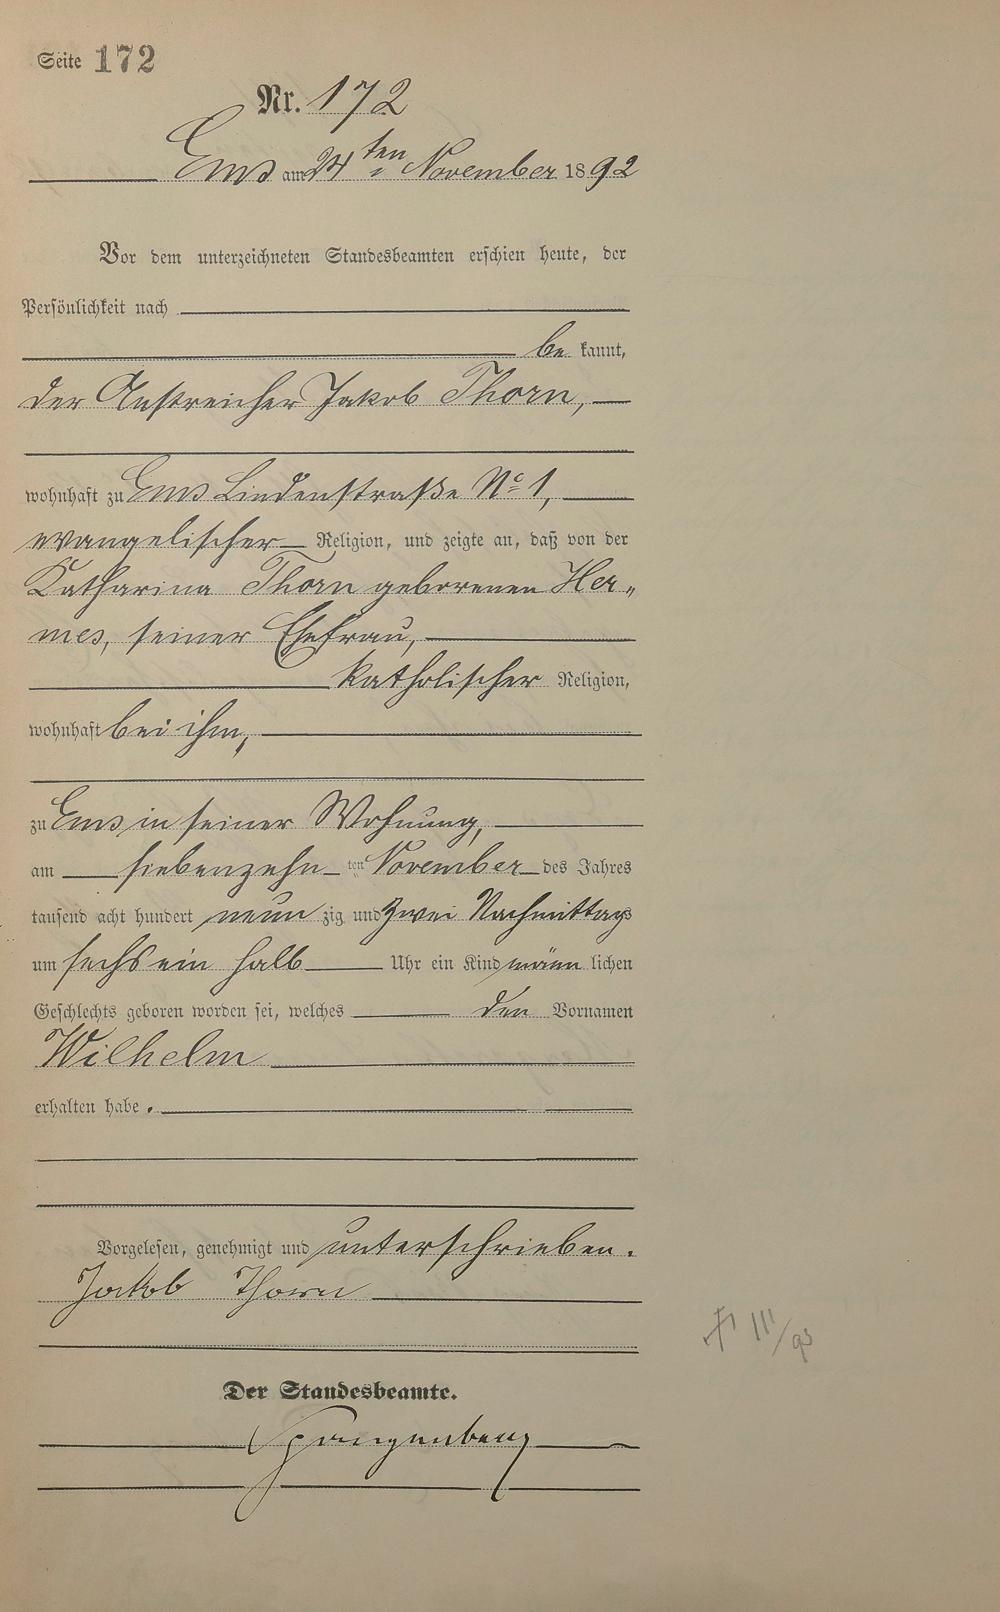 Seite 172
Nr. 172
Ems am 24ten November 1892
Vor dem unterzeichneten Standesbeamten erschien heute, der
Persönlichkeit nach
be kannt,
der Anstreicher Jakob Thorn,
wohnhaft zu Ems Lindenstraße No 1,
evangelischer Religion, und zeigte an, daß von der
Katharina Thorn geborenen Her„
mes, seiner Ehefrau,
katholischer Religion,
wohnhaft bei ihm,
zu Ems in seiner Wohnung,
am siebenzehn ten November des Jahres
tausend acht hundert neun zig und zwei Nachmittags
um sechs ein halb Uhr ein Kind männ lichen
Geschlechts geboren worden sei, welches den Vornamen
Wilhelm
erhalten habe.
Vorgelesen, genehmigt und unterschrieben.
Jakob Thorn
III/93
Der Standesbeamte.
Spangenberg